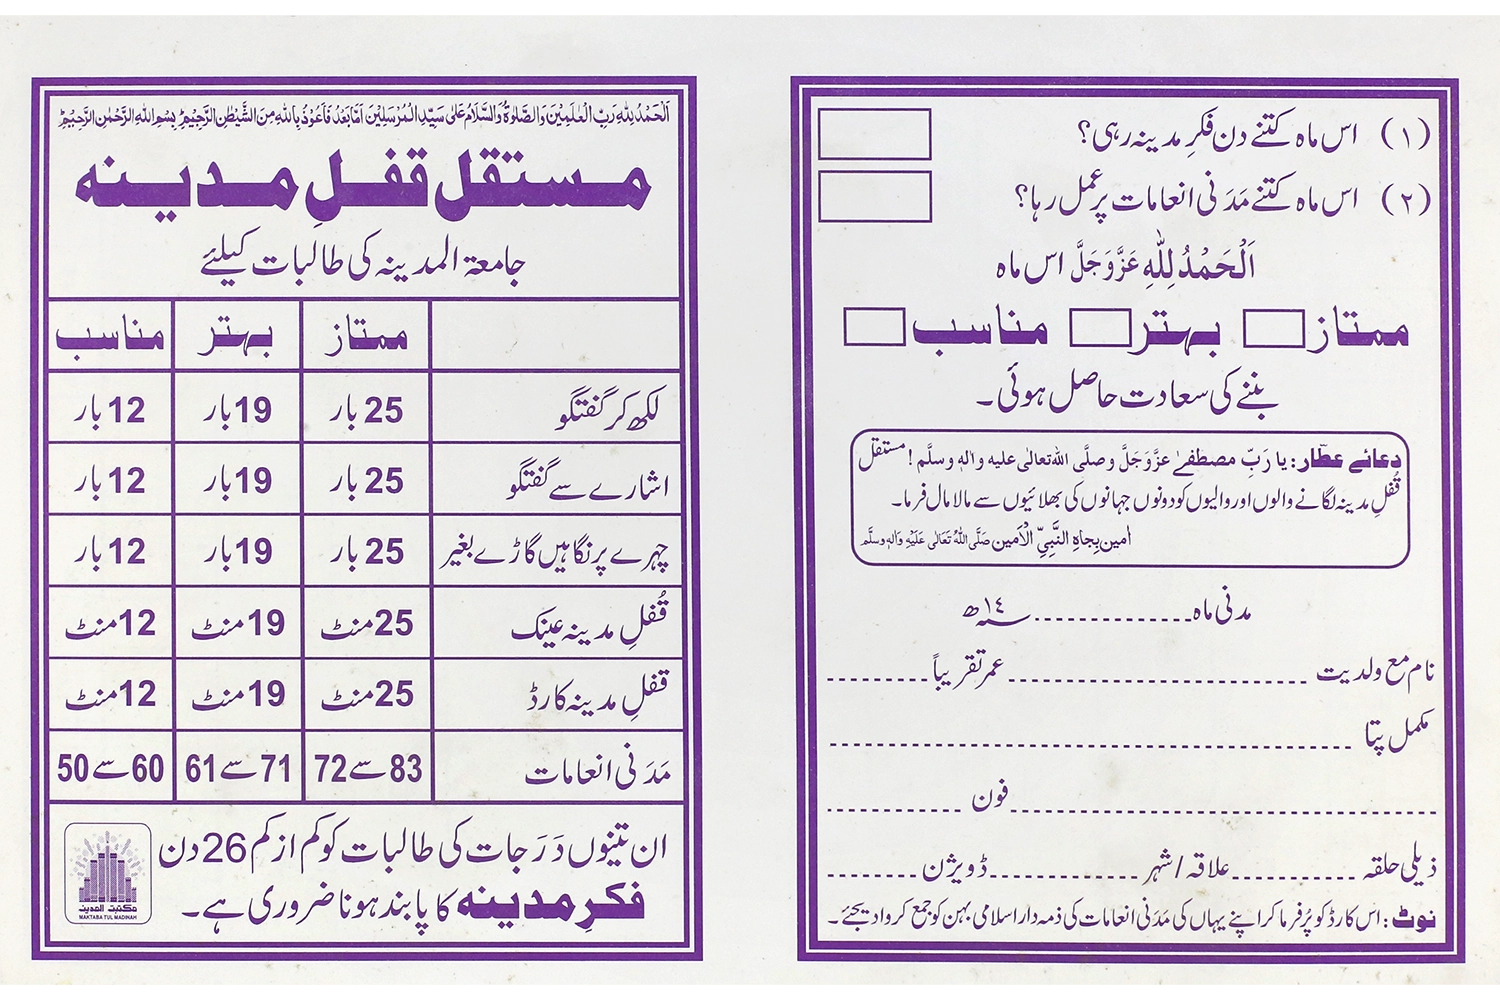 اَلْحَمْدُ لِلّٰهِ رَبِّ الْعٰلَمِیْنَ وَالصَّلٰوۃُ وَالسَّلَامُ عَلٰی سَیِّدِ الْمُرْسَلِیْنَ اَمَّا بَعْدُ فَاَعُوْذُ بِاللّٰهِ مِنَ الشَّیْطٰنِ الرَّجِیْمِ ؕ بِسْمِ اللّٰهِ الرَّحْمٰنِ الرَّحِیْمِ ؕ
مستقل قفلِ مدینه
جامعۃ المدینہ کی طالبات کیلئے
ممتاز بہتر مناسب
لکھ کر گفتگو 25 بار 19 بار 12 بار
اشارے سے گفتگو 25 بار 19 بار 12 بار
چہرے پر نگاہیں گاڑے بغیر 25 بار 19 بار 12 بار
قُفلِ مدینہ عینک 25 منٹ 19 منٹ 12 منٹ
قفلِ مدینہ کارڈ 25 منٹ 19 منٹ 12 منٹ
مَدَنی انعامات 83 سے 72 71 سے 61 60 سے 50
ان تینوں دَرَجات کی طالبات کو کم از کم 26 دن
فکرِ مدینه کا پابند ہونا ضروری ہے۔
مکتبۃ المدینہ
MAKTABA TUL MADINAH
(۱) اس ماہ کتنے دن فکرِ مدینہ رہی؟
(۲) اس ماہ کتنے مَدَنی انعامات پر عمل رہا؟
اَلْحَمْدُ لِلّٰهِ عَزَّوَجَلَّ اس ماہ
ممتاز بہتر مناسب
بننے کی سعادت حاصل ہوئی۔
دعائے عطّار: یا رَبِّ مصطفےٰ عزَّوَجَلَّ وصلَّی اللہ تعالٰی علیہ واٰلہٖ وسلَّم! مستقل
قُفلِ مدینہ لگانے والوں اور والیوں کو دونوں جہانوں کی بھلائیوں سے مالا مال فرما۔
اٰمین بِجاہِ النَّبِیِّ الْاَمین صَلَّی اللہُ تَعَالٰی عَلَیْہِ وَاٰلہٖ وسلَّم
مدنی ماہ ............... سنہ ۱٤ھ
نام مع ولدیت ............... عمر تقریباً ...............
مکمل پتا ...............
............... فون ...............
ذیلی حلقہ ............... علاقہ/شہر ............... ڈویژن ...............
نوٹ: اس کارڈ کو پُر فرما کر اپنے یہاں کی مَدَنی انعامات کی ذمہ دار اسلامی بہن کو جمع کروا دیجئے۔